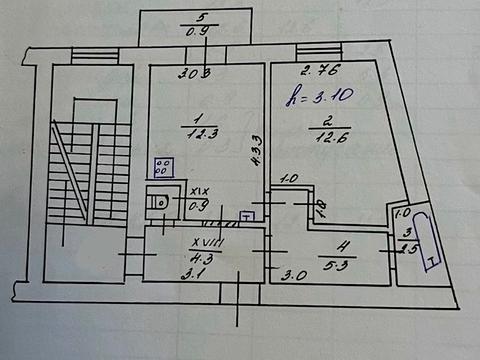 5
0.9
3.03
2.76
h = 3.10
1
12.3
2
12.6
4.33
1.0
1.0
XIX
0.9
T
1.0
3
2.5
T
XVIII
4.3
3.1
4
5.3
3.0